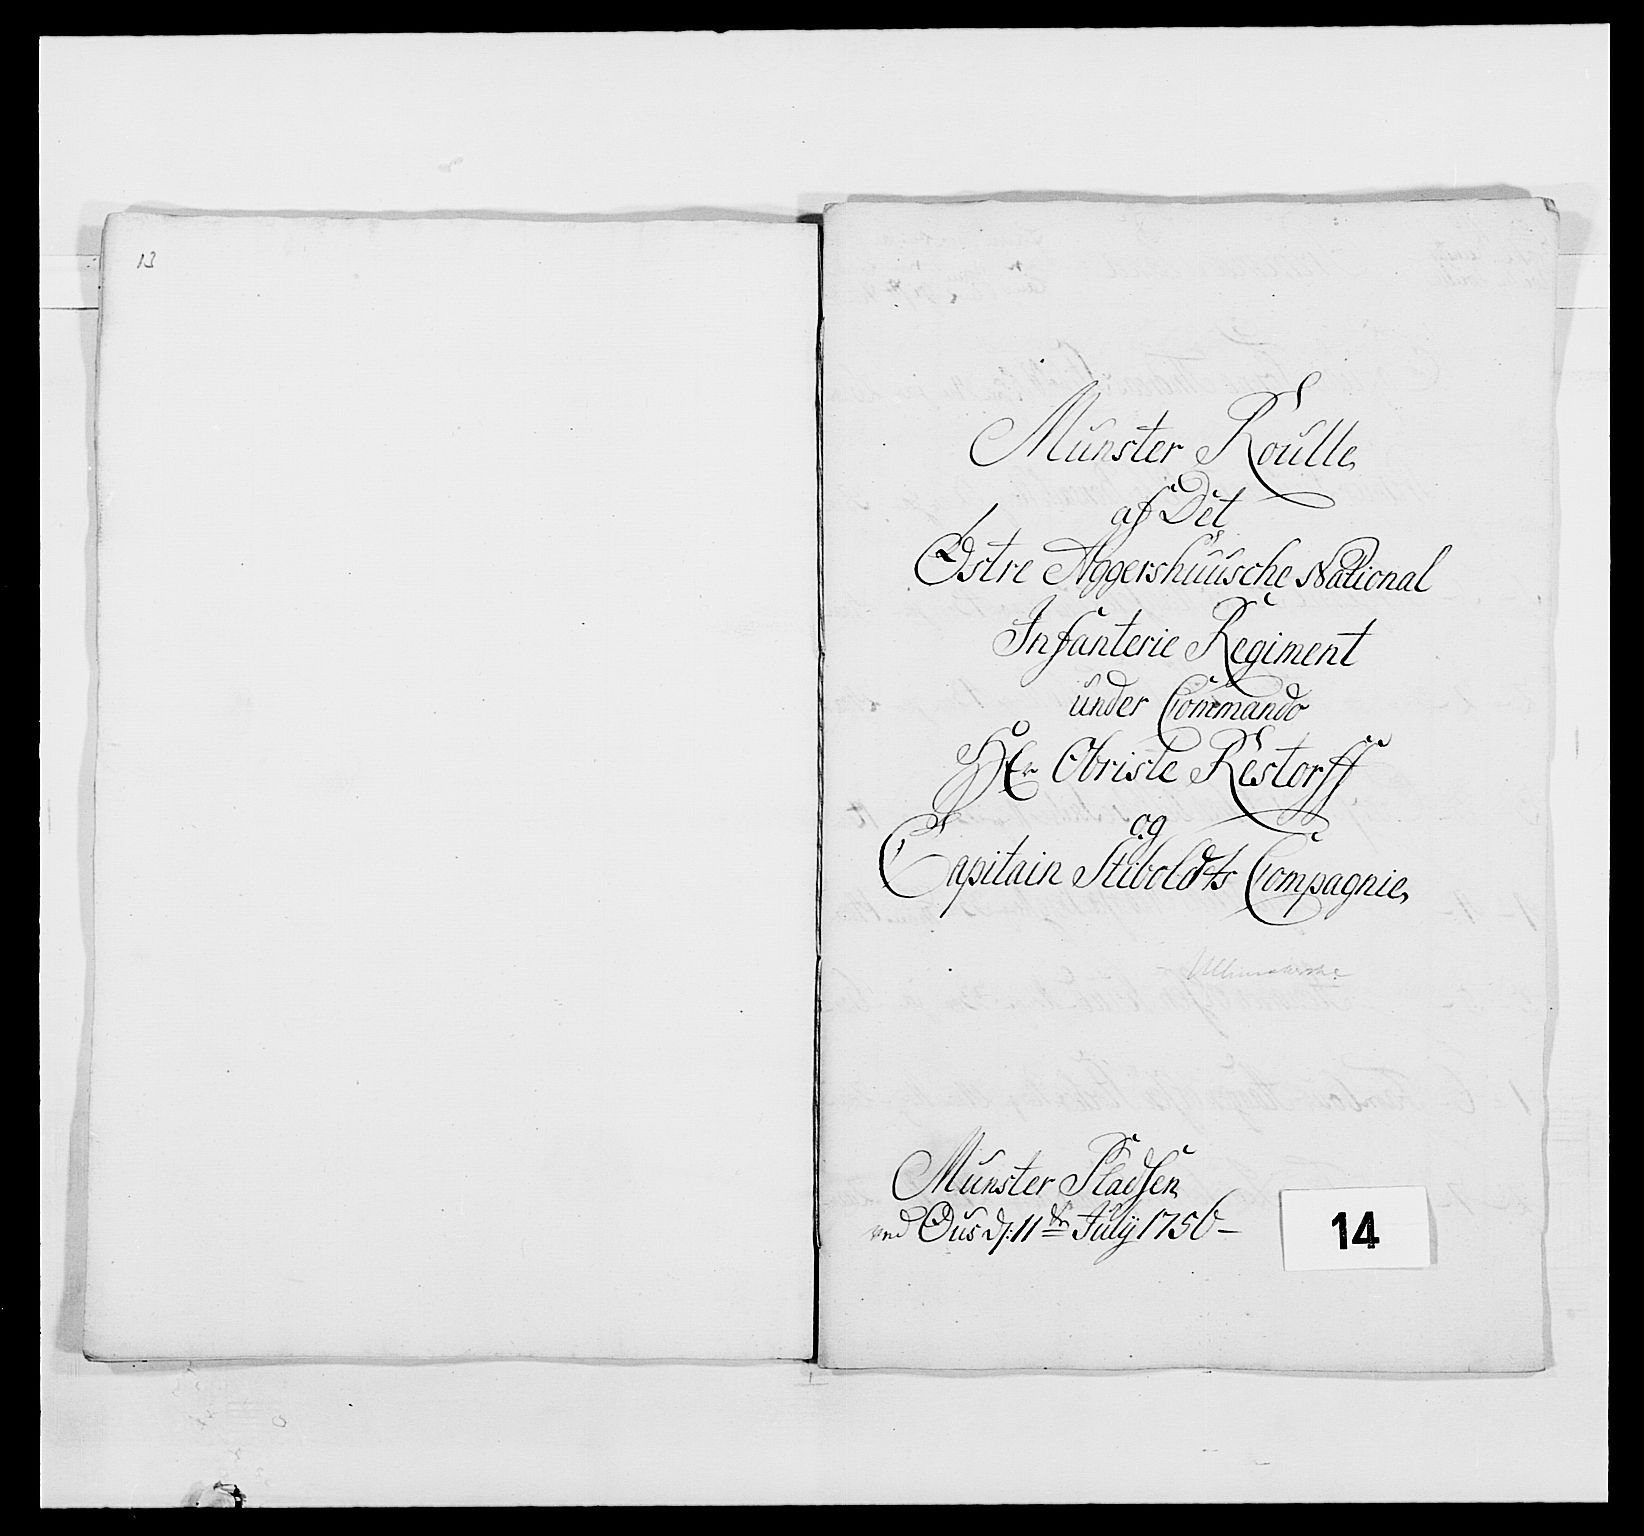 13
Münster Roülle
af Det
Østre Aggershuusche National
Infanterie Regiment
ünder Commando
Hr Obriste Restorff
og
Capitain Stiboldts Compagnie
Münster Pladsen
ved Ous d: 11te Julÿ 1756 –
14